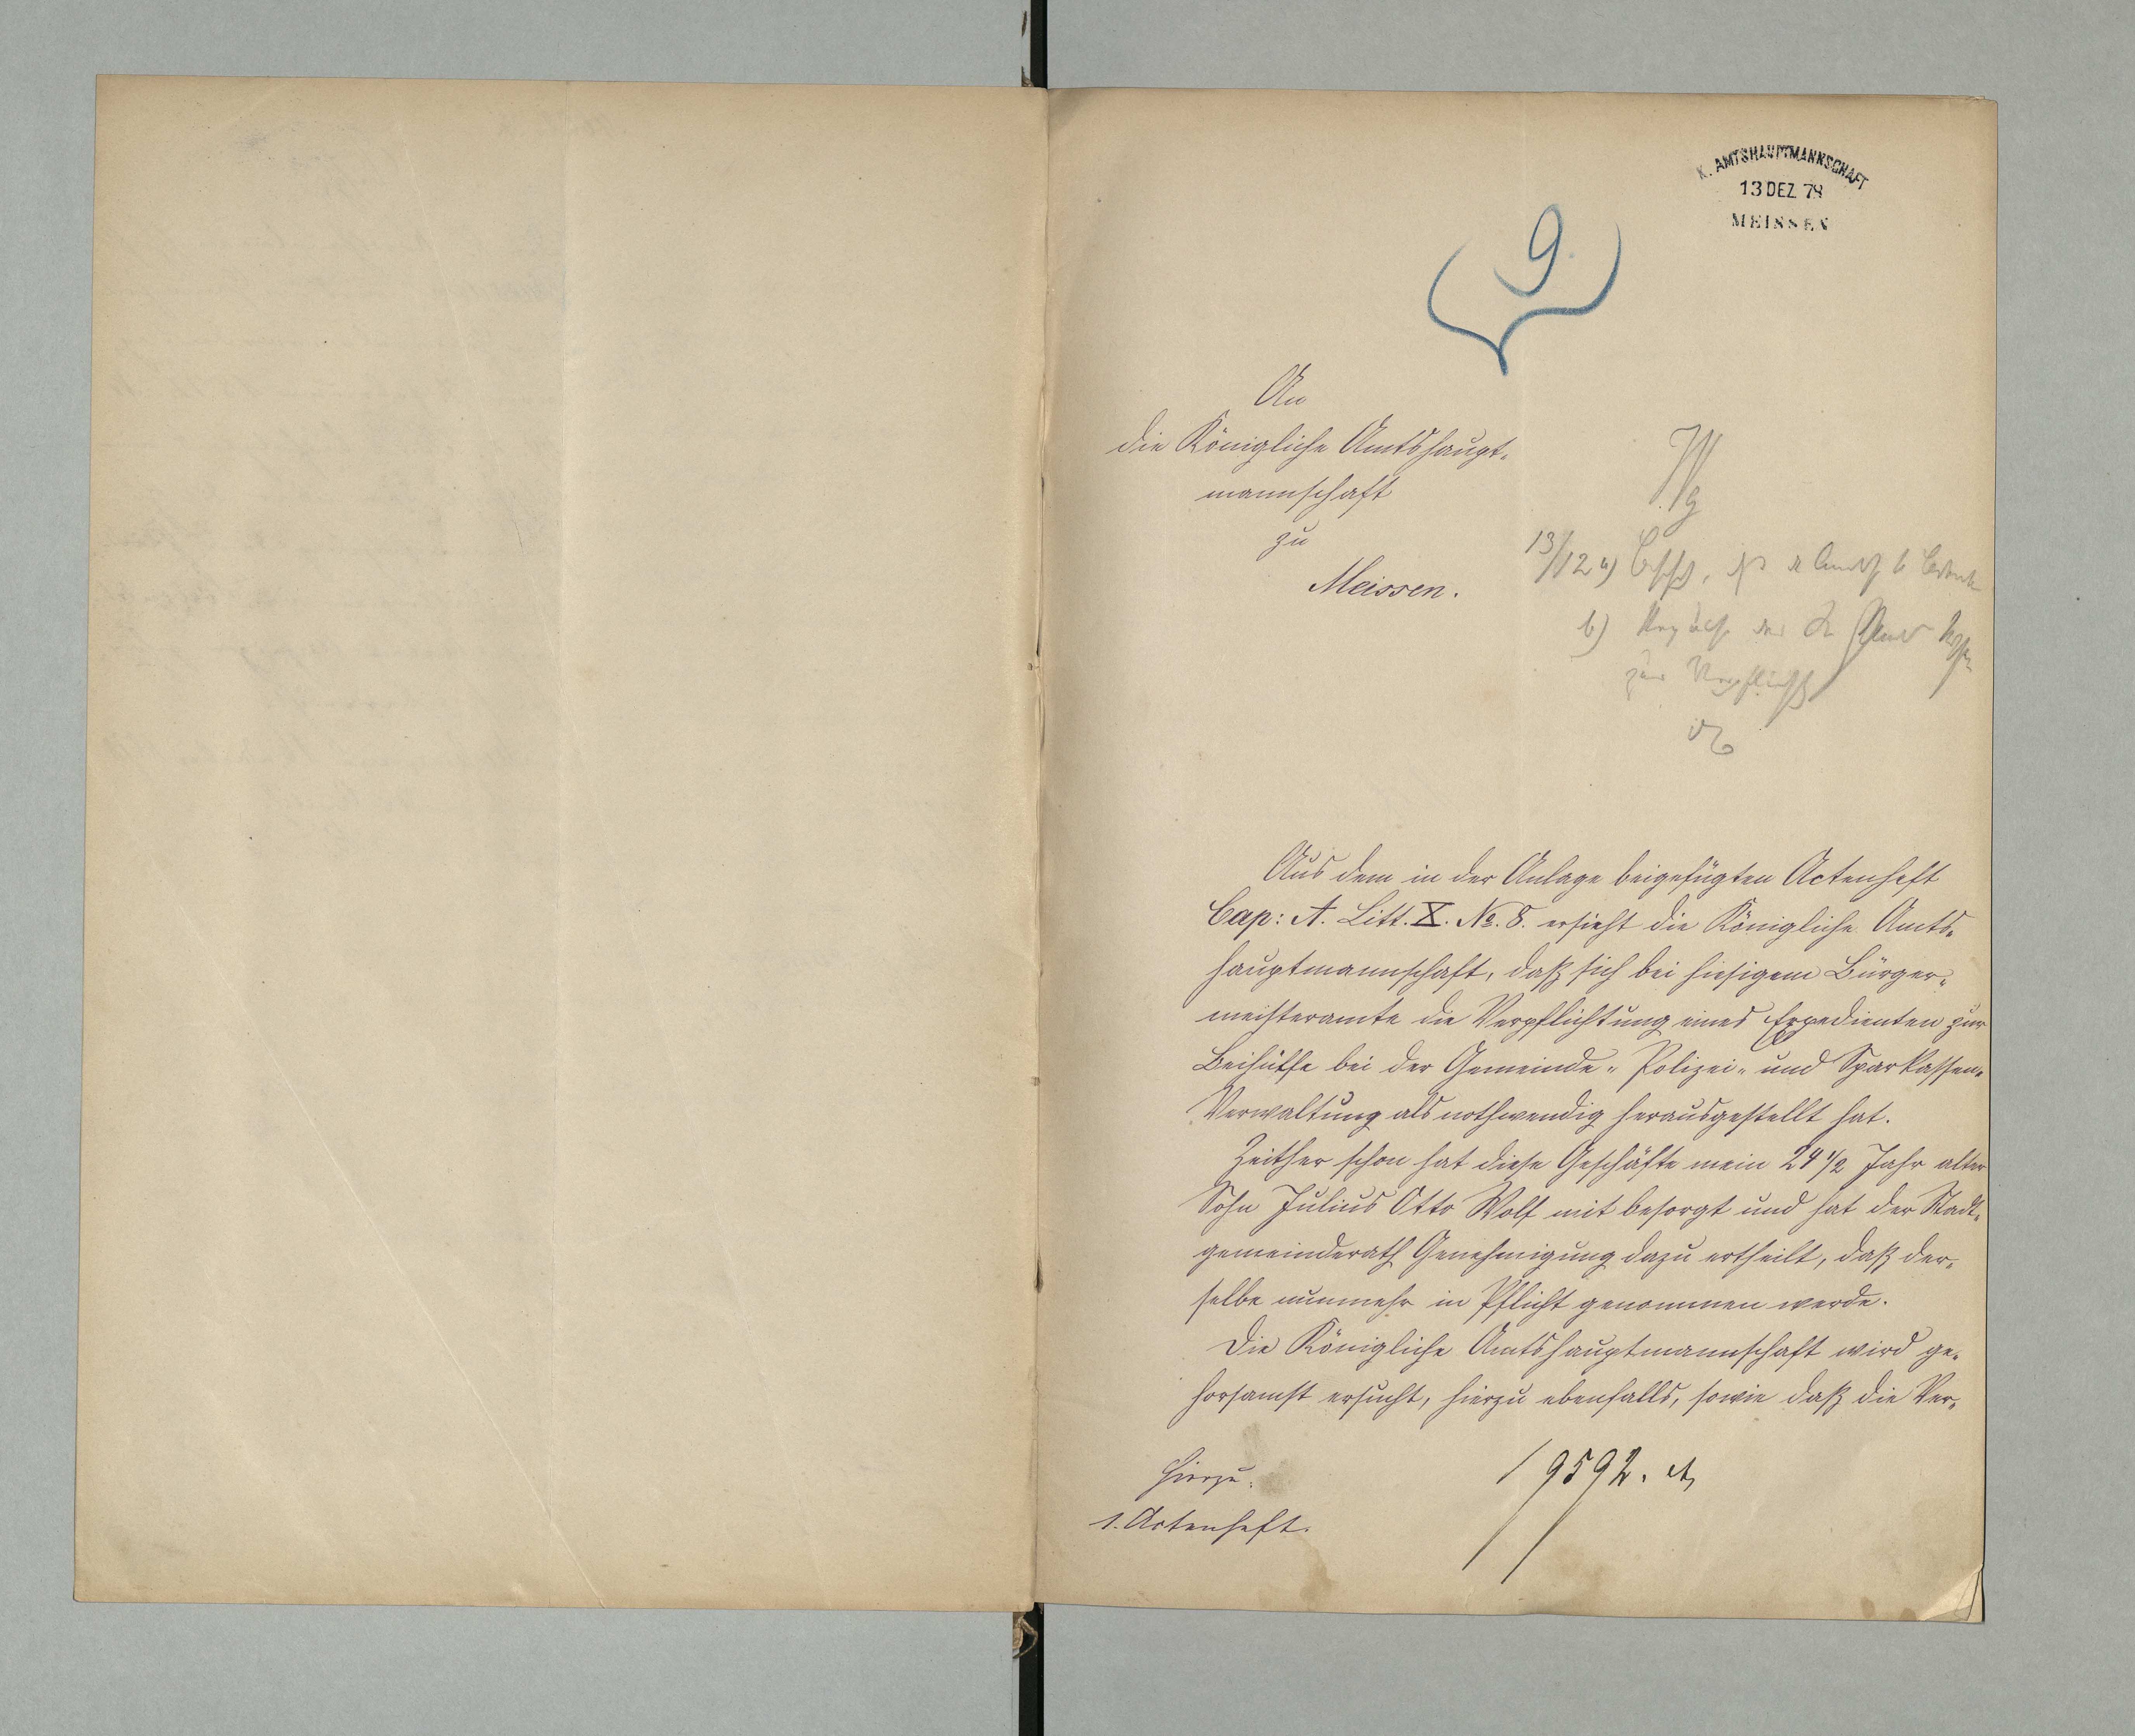 K. AMTSHAUPTMANNSCHAFT
13 DEZ. 78
MEISSEN
9.
An
die Königliche Amtshaupt-
mannschaft
zu
Meissen.
13/12 a)
b)
zur
Aus dem in der Anlage beigefügten Actenheft
Cap: A. Litt. X. No. 8. ersieht die Königliche Amts-
hauptmannschaft, daß sich bei hiesigem Bürger-
meisteramte die Verpflichtung eines Expedienten zur
Beihülfe bei der Gemeinde- Polizei- und Sparkassen-
Verwaltung als nothwendig herausgestellt hat.
Zeither schon hat diese Geschäfte mein 24 1/2 Jahr alter
Sohn Julius Otto Wolf mit besorgt und hat der Stadt-
gemeinderath Genehmigung dazu ertheilt, daß der-
selbe nunmehr in Pflicht genommen werde.
Die Königliche Amtshauptmannschaft wird ge-
horsamst ersucht, hierzu ebenfalls, sowie daß die Ver-
Hierzu:
1. Actenheft.
9592. A